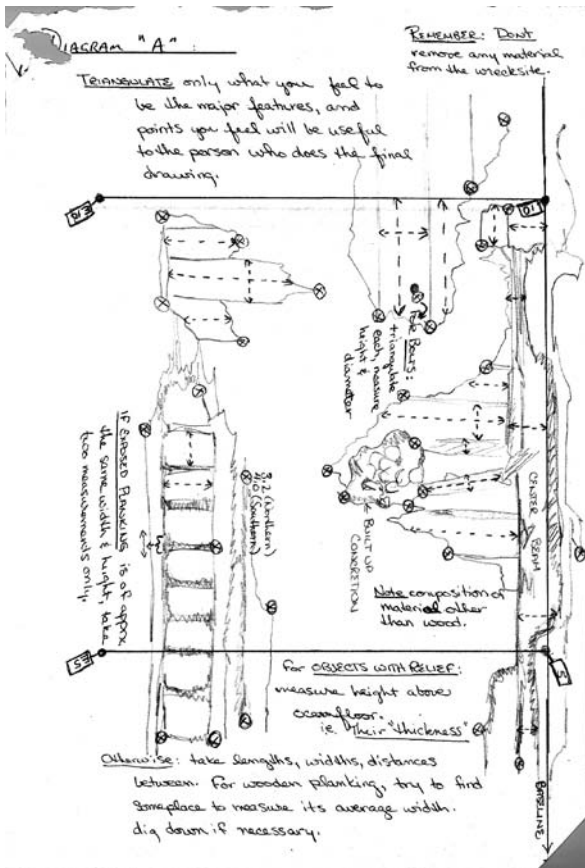 DIAGRAM "A":
REMEMBER: DONT
remove any material
from the wrecksite.
TRIANGULATE only what you feel to
be the major features, and
points you feel will be useful
to the person who does the final
drawing.
10
FOR BOLTS:
triangulate
each, measure
height &
diameter
IF EXPOSED PLANKING is of approx
the same width & height, take
two measurements only.
(Northern)
(Southern)
BUILT UP
CONCRETION
CENTER BEAM
Note composition of
material other
than wood.
5
For OBJECTS WITH RELIEF:
measure height above
ocean floor.
i.e. Their "thickness"
Otherwise: take lengths, widths, distances
between. For wooden planking, try to find
someplace to measure its average width.
dig down if necessary.
BASELINE